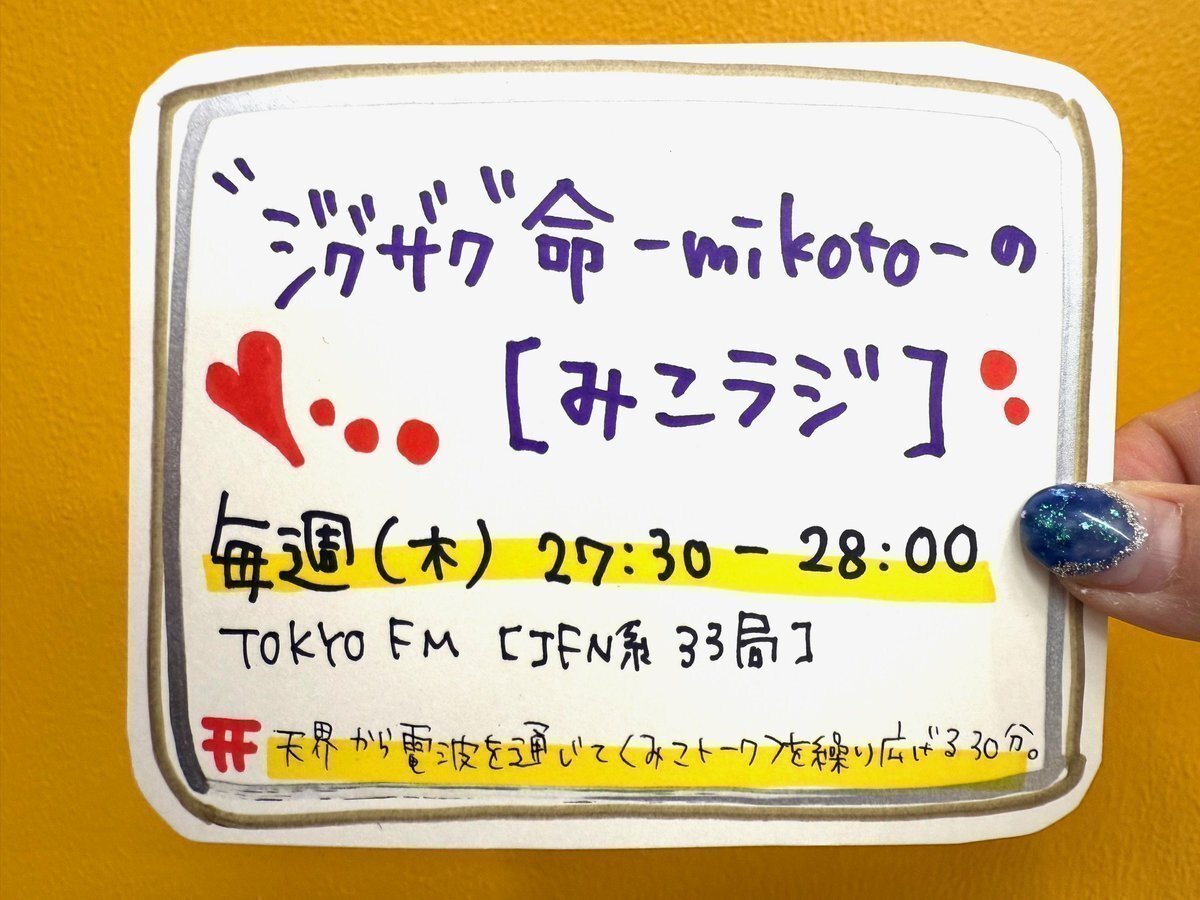 “ジグザグ”命-mikoto-の
[みこラジ]
毎週(木) 27:30-28:00
TOKYO FM [JFN系 33局]
天界から電波を通じて〈みこトーク〉を繰り広げる30分。